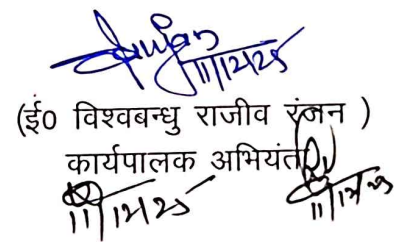 11/12/25
(ई0 विश्वबन्धु राजीव रंजन )
कार्यपालक अभियंता
11/12/25 11/12/25